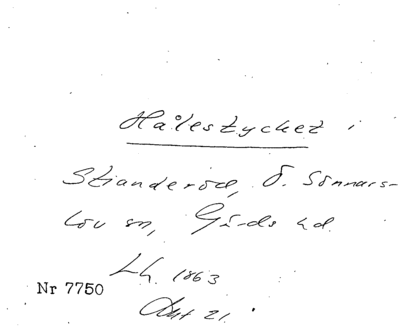 Hålestycket i
Stianderöd, Ö. Sönnars-
löv sn, Gärds hd.
Lh. 1863
Nr 7750
Akt 21.